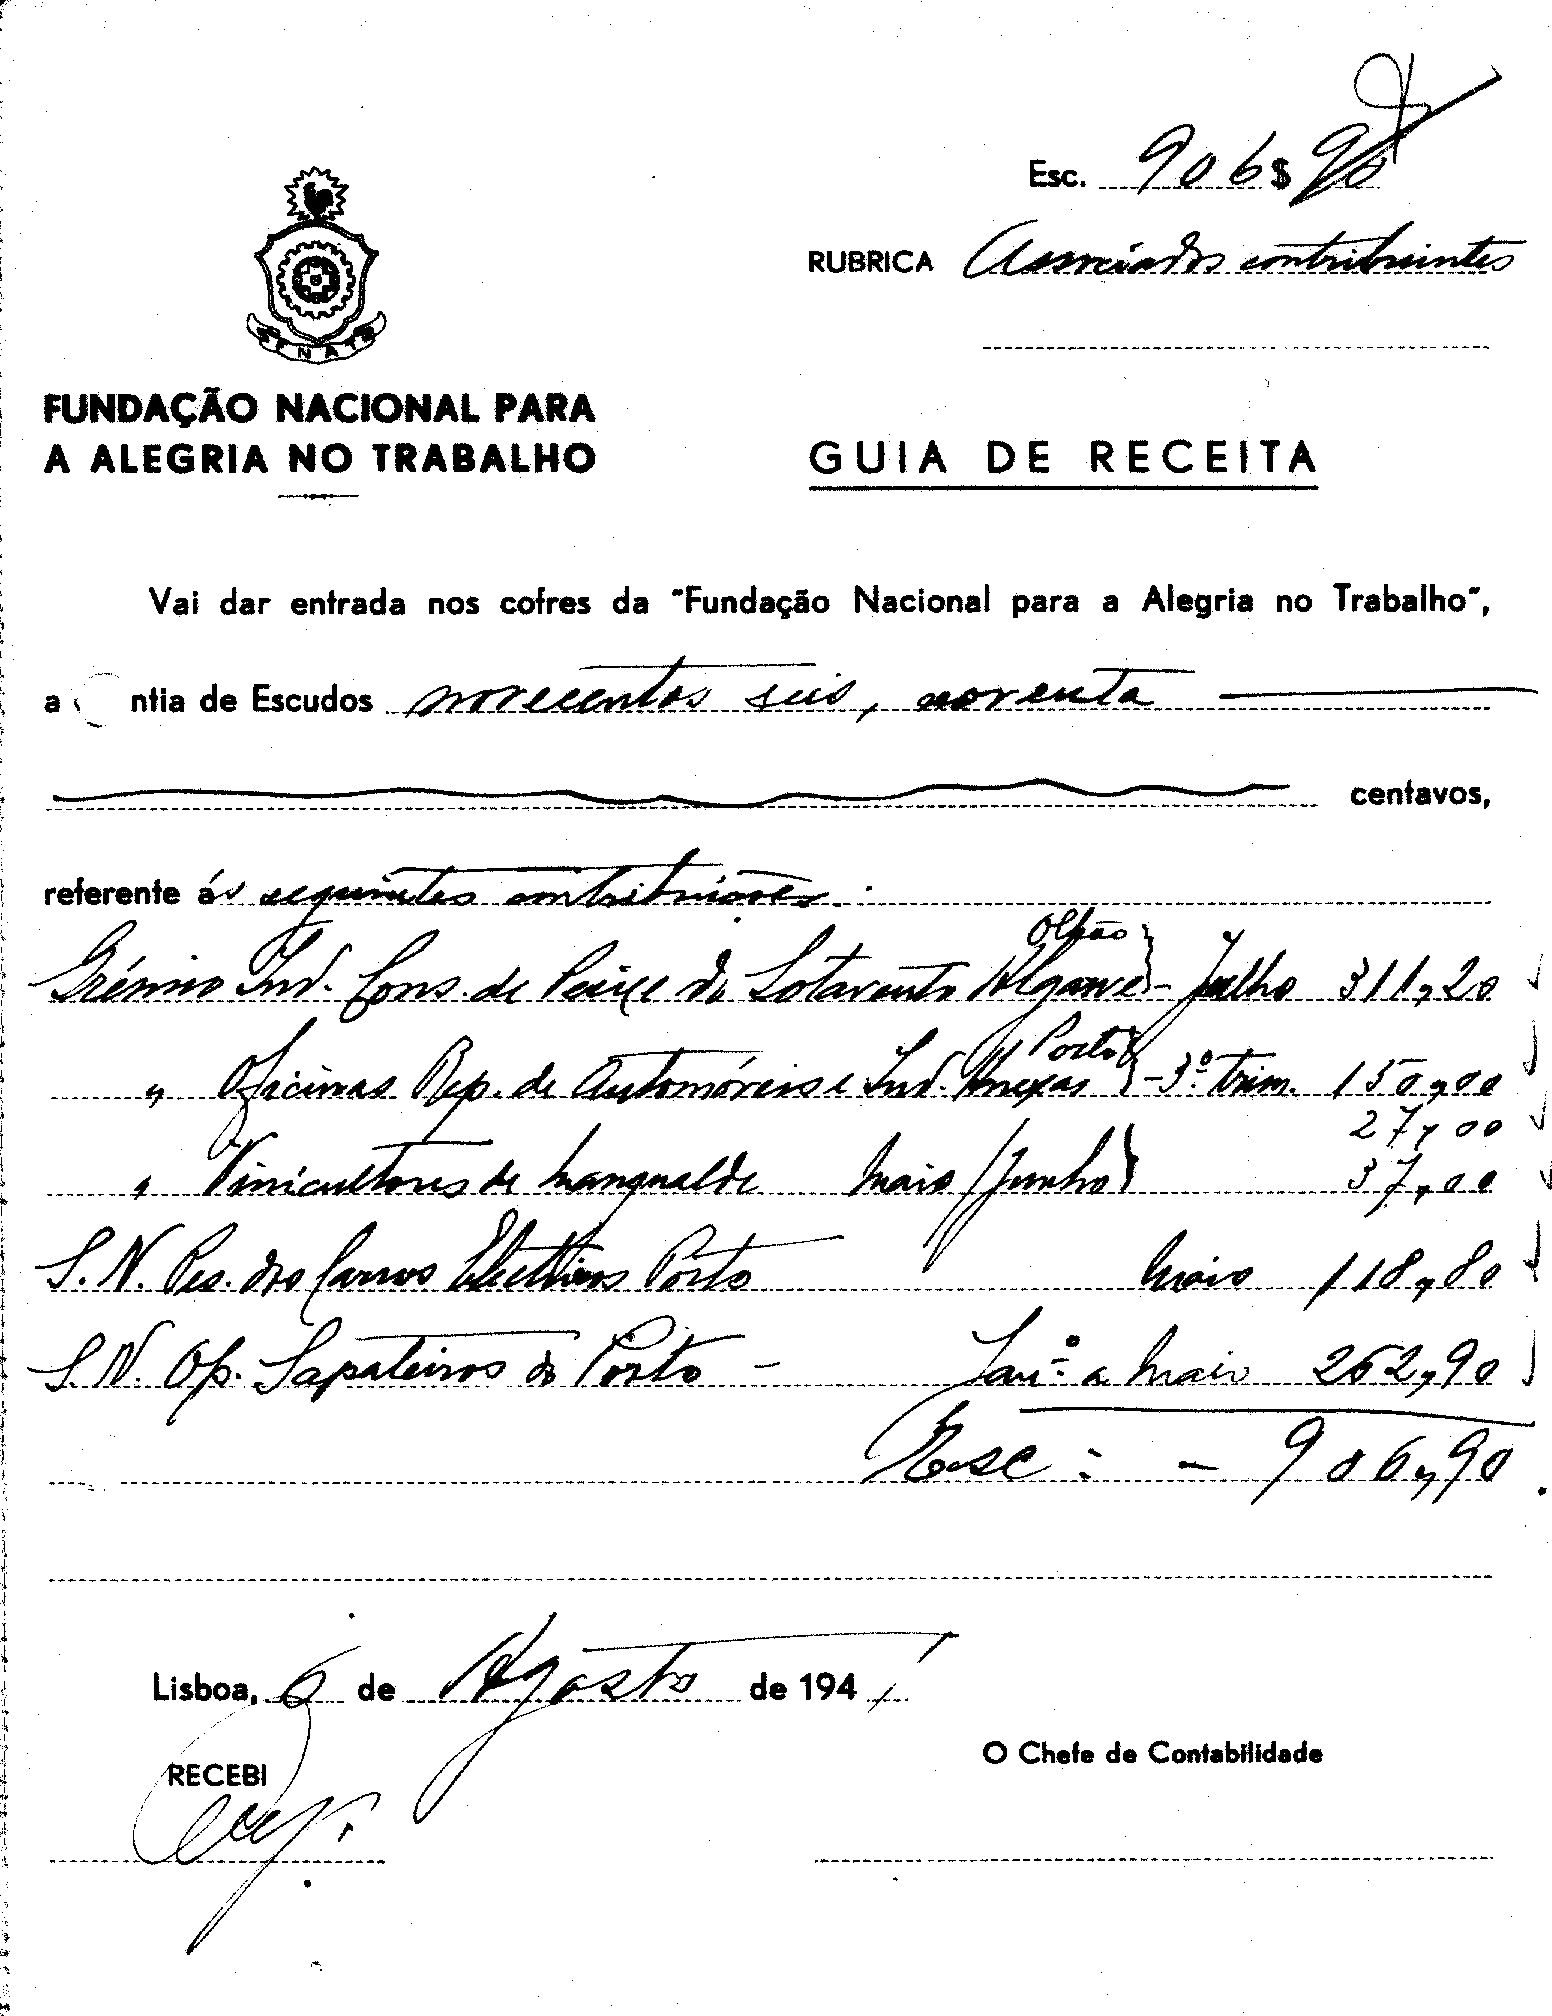 Esc. 906$90
RUBRICA Associados contribuintes
FENAT
FUNDAÇÃO NACIONAL PARA
A ALEGRIA NO TRABALHO
GUIA DE RECEITA
Vai dar entrada nos cofres da "Fundação Nacional para a Alegria no Trabalho",
a ntia de Escudos novecentos seis, noventa
centavos,
referente ás seguintes contribuições:
Olhão
Grémio Ind. Cons. de Peixe do Sotavento Algarve - Julho 311,20
Porto
" Oficinas Rep. de Automóveis e Ind. Anexas - 3.º trim. 150,00
27,00
" Vinicultores de Mangualde Maio/Junho 37,00
S. N. Pes. dos Carros Electricos Porto Maio 118,80
S. N. Op. Sapateiros do Porto - Jan.º a Maio 262,90
Esc: - 906,90
Lisboa, 6 de Agosto de 1941
RECEBI
O Chefe de Contabilidade